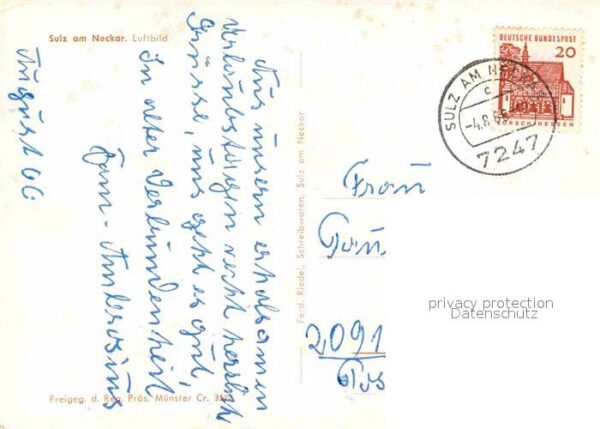 Sulz am Neckar. Luftbild
Aus unsern erholsamen
Urlaubstagen recht herzliche
Grüsse, uns geht es gut.
In alter Verbundenheit
Fam. Ambrosius
August 66
Freigeg. d. Reg. Präs. Münster Cr.
Ferd. Riedel, Schreibwaren, Sulz am Neckar
DEUTSCHE BUNDESPOST
20
LORSCH/HESSEN
SULZ AM NECKAR
c
-4.8.66
7247
Frau
2091
privacy protection
Datenschutz